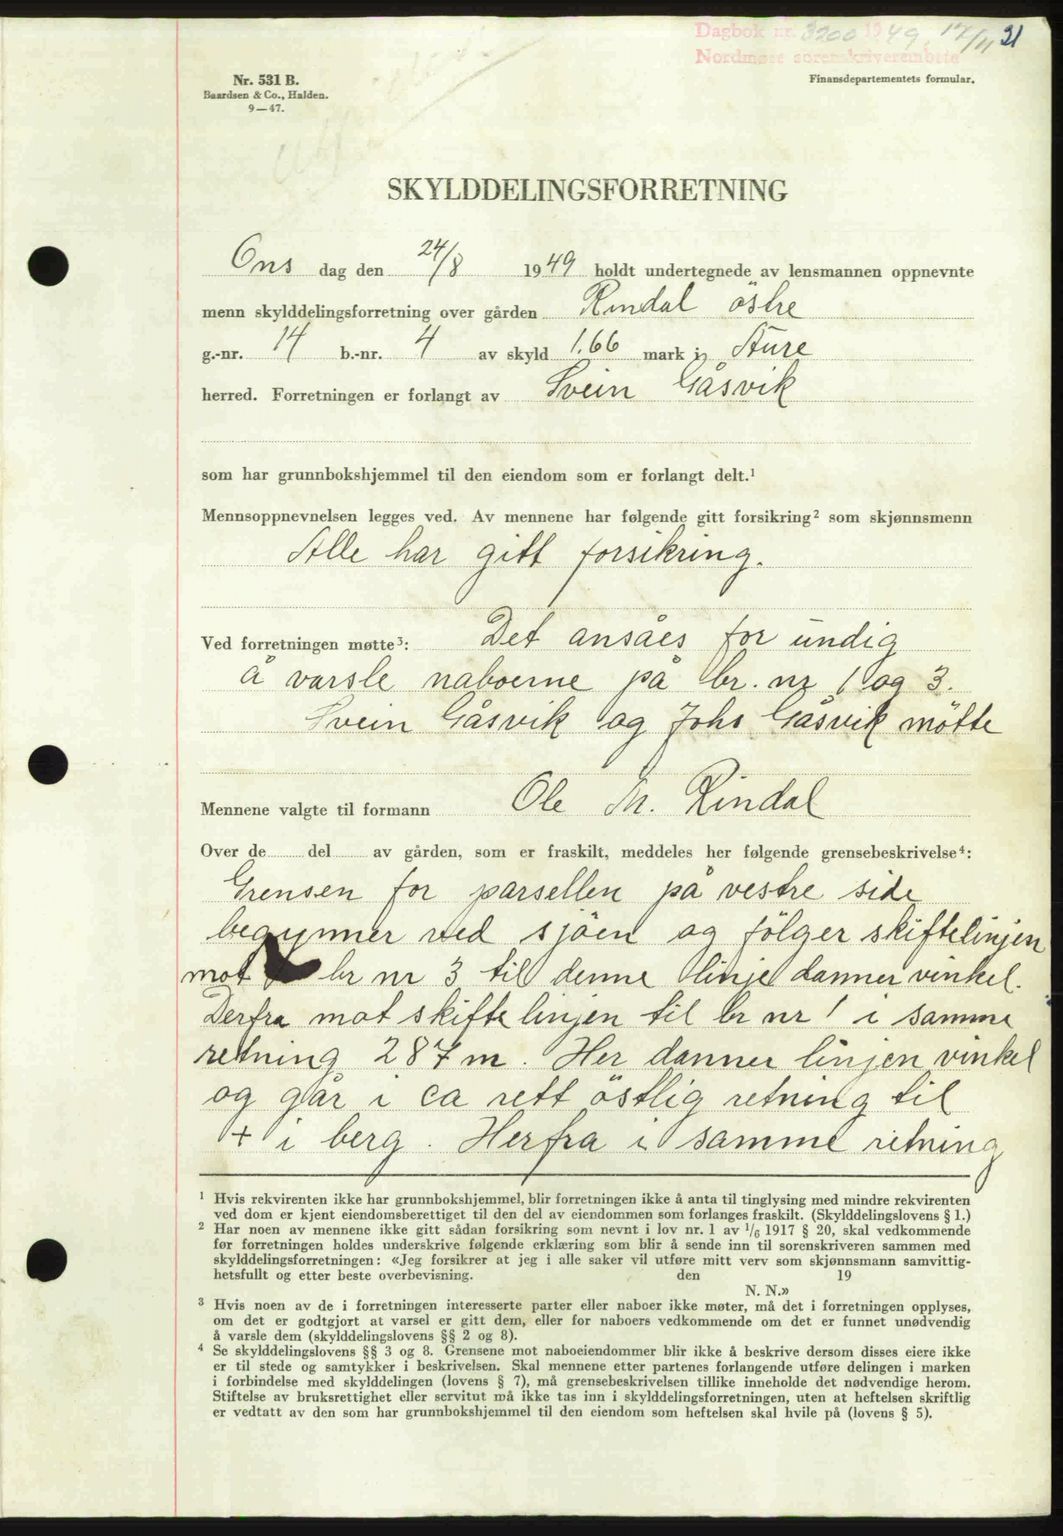 Dagbok nr. 3200 1949. 17/11 21
Nordmøre sorenskriverembete
Nr. 531 B.
Baardsen & Co., Halden.
9—47.
Finansdepartementets formular.
SKYLDDELINGSFORRETNING
Ons dag den 24/8 1949 holdt undertegnede av lensmannen oppnevnte
menn skylddelingsforretning over gården Rindal östre
g.-nr. 14 b.-nr. 4 av skyld 1.66 mark i Aure
herred. Forretningen er forlangt av Svein Gåsvik
som har grunnbokshjemmel til den eiendom som er forlangt delt.¹
Mennsoppnevnelsen legges ved. Av mennene har følgende gitt forsikring² som skjønnsmenn
Alle har gitt forsikring.
Ved forretningen møtte³: Det ansåes for undig
å varsle naboerne på br. nr 1 og 3.
Svein Gåsvik og Johs Gåsvik mötte
Mennene valgte til formann Ole M. Rindal
Over de del av gården, som er fraskilt, meddeles her følgende grensebeskrivelse⁴:
Grensen for parsellen på vestre side
begynner ved sjöen og fölger skiftelinjen
mot br nr 3 til denne linje danner vinkel.
Derfra mot skiftelinjen til br nr 1 i samme
retning 287 m. Her danner linjen vinkel
og går i ca rett östlig retning til
+ i berg. Herfra i samme retning
¹ Hvis rekvirenten ikke har grunnbokshjemmel, blir forretningen ikke å anta til tinglysing med mindre rekvirenten
ved dom er kjent eiendomsberettiget til den del av eiendommen som forlanges fraskilt. (Skylddelingslovens § 1.)
² Har noen av mennene ikke gitt sådan forsikring som nevnt i lov nr. 1 av 1/6 1917 § 20, skal vedkommende
før forretningen holdes underskrive følgende erklæring som blir å sende inn til sorenskriveren sammen med
skylddelingsforretningen: «Jeg forsikrer at jeg i alle saker vil utføre mitt verv som skjønnsmann samvittig-
hetsfullt og etter beste overbevisning. den 19
N. N.»
³ Hvis noen av de i forretningen interesserte parter eller naboer ikke møter, må det i forretningen opplyses,
om det er godtgjort at varsel er gitt dem, eller for naboers vedkommende om det er funnet unødvendig
å varsle dem (skylddelingslovens §§ 2 og 8).
⁴ Se skylddelingslovens §§ 3 og 8. Grensene mot naboeiendommer blir ikke å beskrive dersom disses eiere ikke
er til stede og samtykker i beskrivelsen. Skal mennene etter partenes forlangende utføre delingen i marken
i forbindelse med skylddelingen (lovens § 7), må grensebeskrivelsen tillike inneholde det nødvendige herom.
Stiftelse av bruksrettighet eller servitut må ikke tas inn i skylddelingsforretningen, uten at heftelsen skriftlig
er vedtatt av den som har grunnbokshjemmel til den eiendom som heftelsen skal hvile på (lovens § 5).